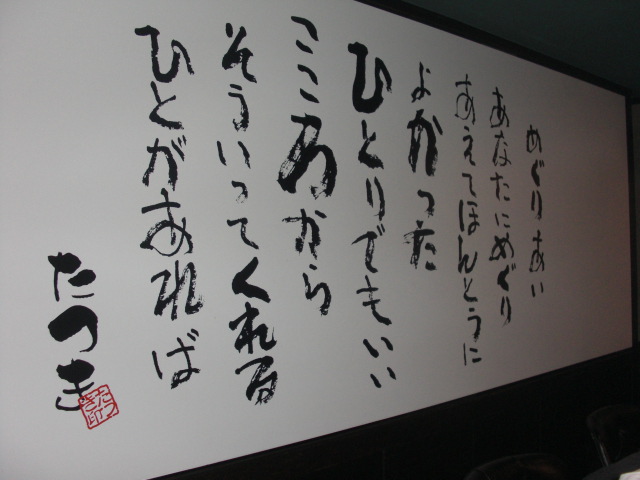 めぐりあい
あなたにめぐり
あえてほんとうに
よかった
ひとりでもいい
こころから
そういってくれる
ひとがあれば
たつき